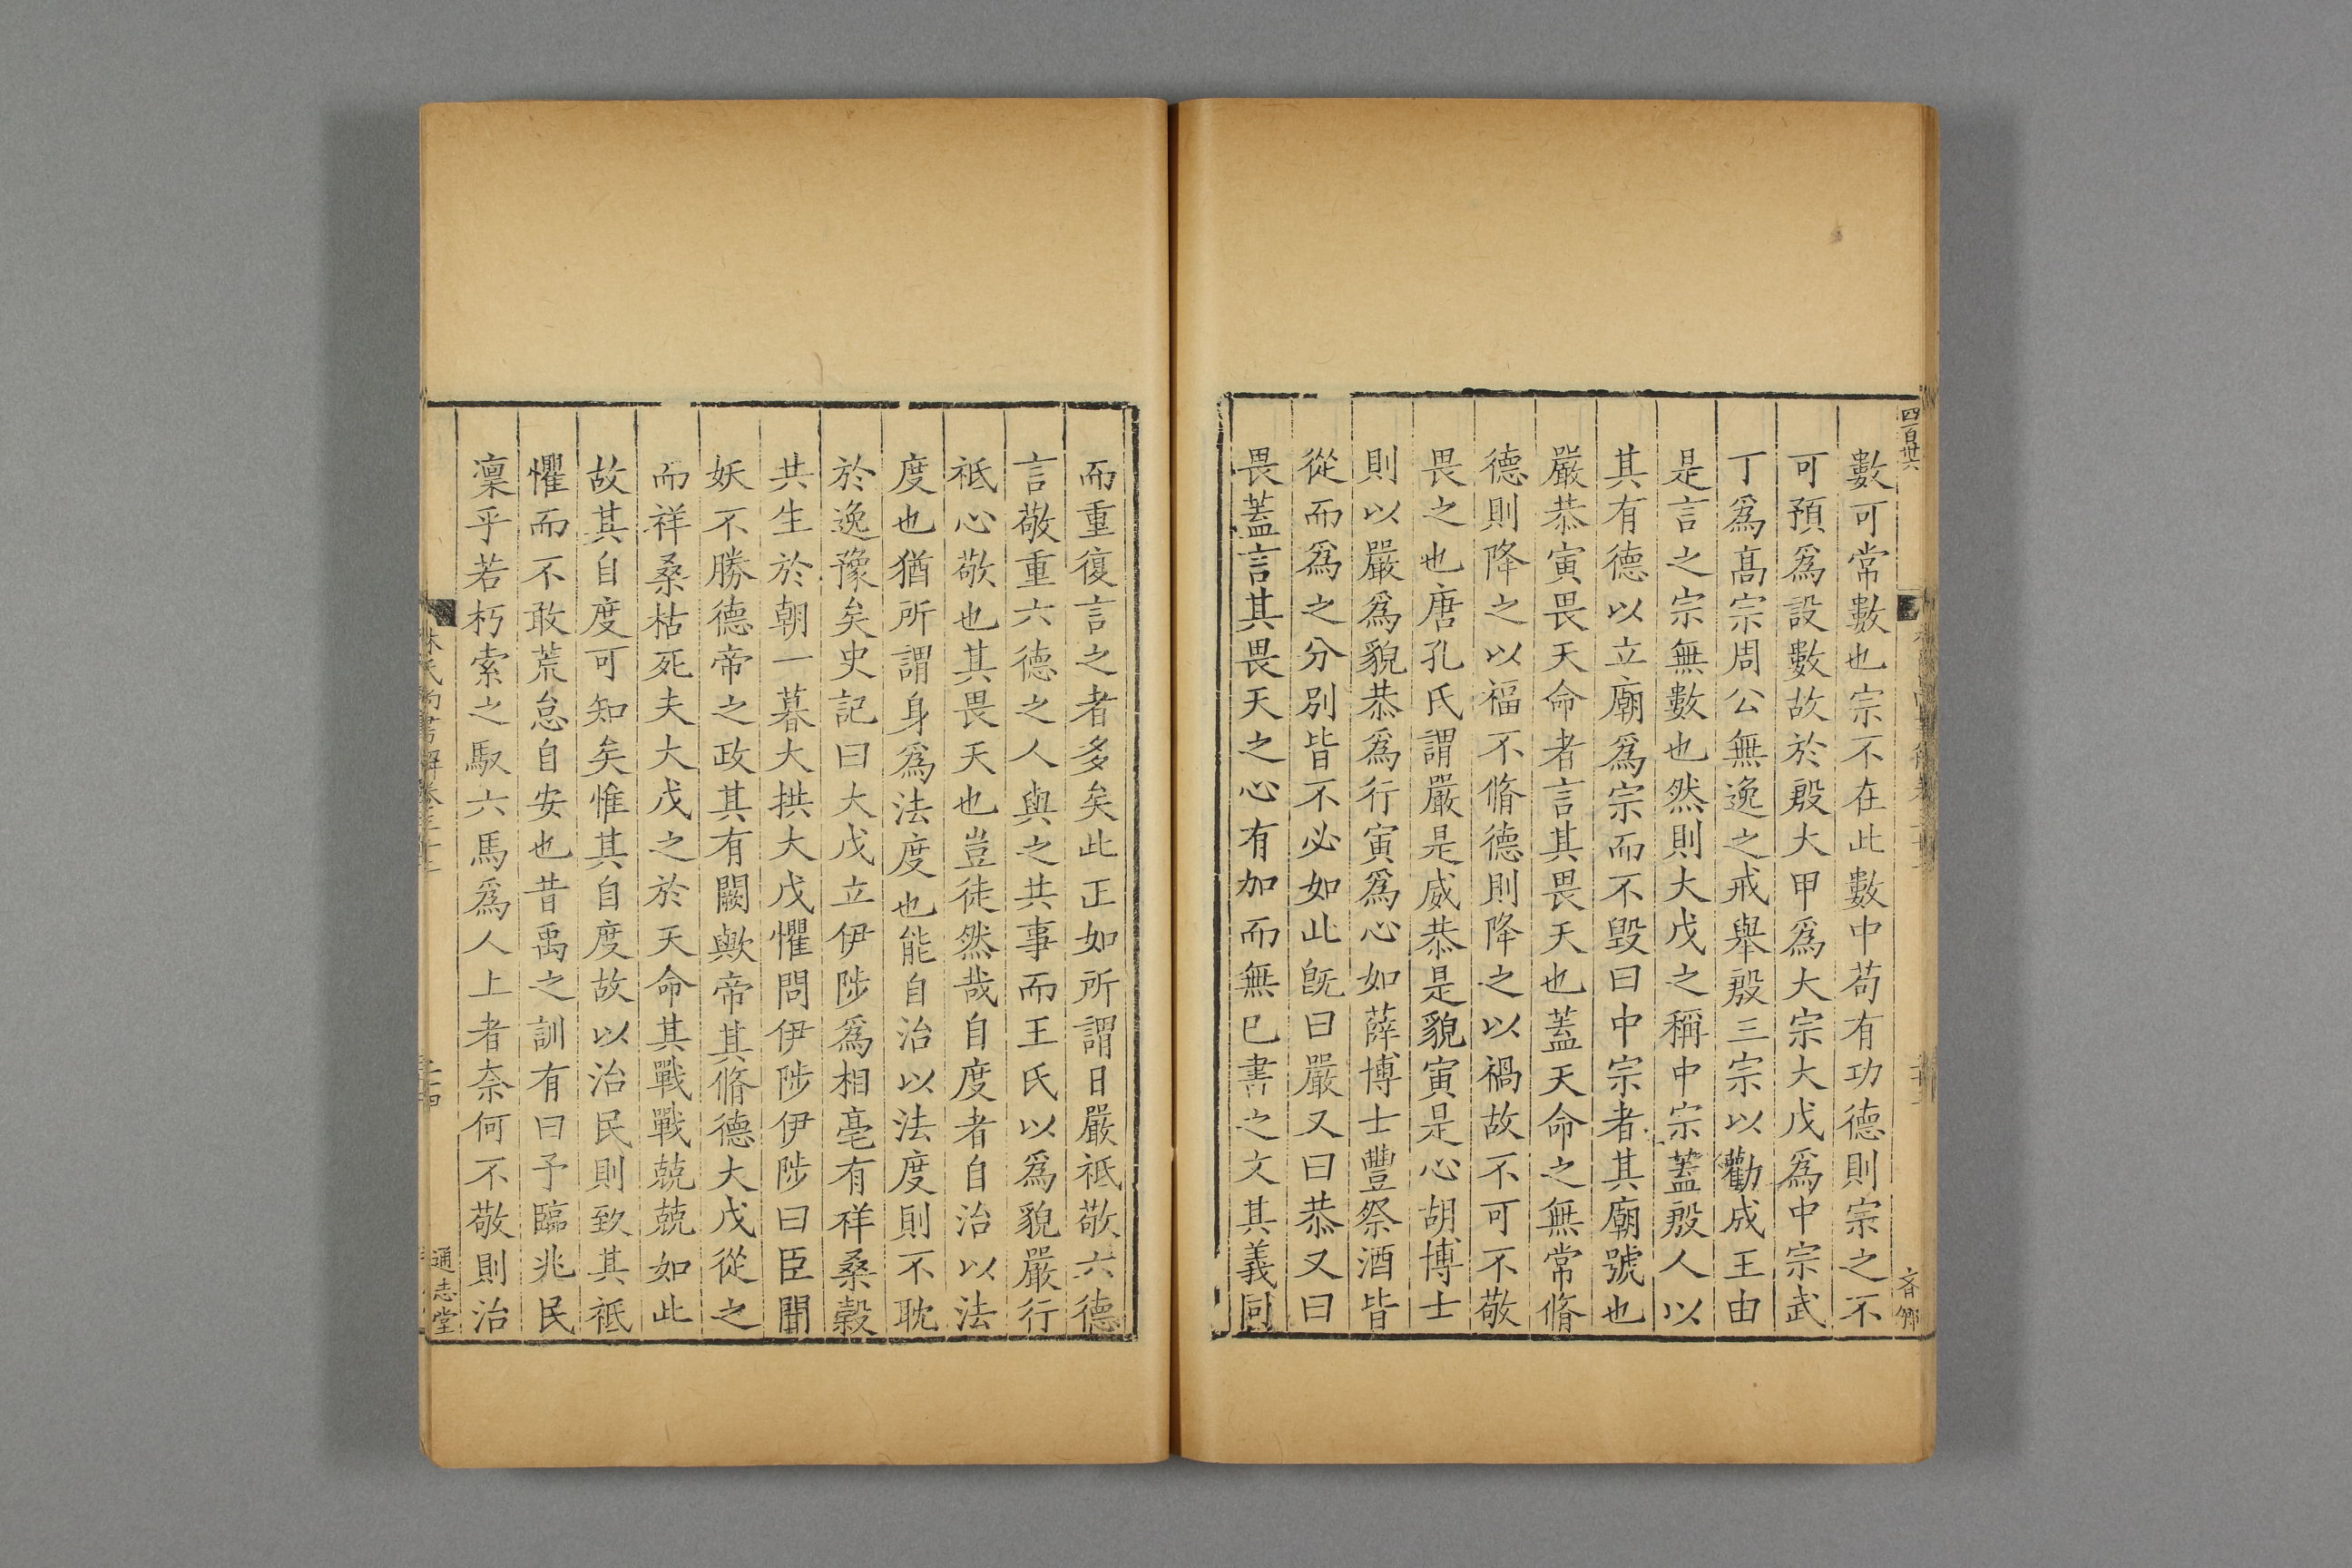 四百卅六
數可常數也宗不在此數中苟有功德則宗之不
可預爲設數故於殷大甲爲大宗大戊爲中宗武
丁爲髙宗周公無逸之戒舉殷三宗以勸成王由
是言之宗無數也然則大戊之稱中宗蓋殷人以
其有德以立廟爲宗而不毀曰中宗者其廟號也
嚴恭寅畏天命者言其畏天也蓋天命之無常脩
德則降之以福不脩德則降之以禍故不可不敬
畏之也唐孔氏謂嚴是威恭是貌寅是心胡博士
則以嚴爲貌恭爲行寅爲心如薛博士豐祭酒皆
從而爲之分別皆不必如此旣曰嚴又曰恭又曰
畏蓋言其畏天之心有加而無已書之文其義同
而重復言之者多矣此正如所謂日嚴祗敬六德
言敬重六德之人與之共事而王氏以爲貌嚴行
祗心敬也其畏天也豈徒然哉自度者自治以法
度也猶所謂身爲法度也能自治以法度則不耽
於逸豫矣史記曰大戊立伊陟爲相亳有祥桑榖
共生於朝一暮大拱大戊懼問伊陟伊陟曰臣聞
妖不勝德帝之政其有闕歟帝其脩德大戊從之
而祥桑枯死夫大戊之於天命其戰戰兢兢如此
故其自度可知矣惟其自度故以治民則致其祗
懼而不敢荒怠自安也昔禹之訓有曰予臨兆民
凜乎若朽索之馭六馬爲人上者奈何不敬則治
林氏尚書解卷三十
通志堂